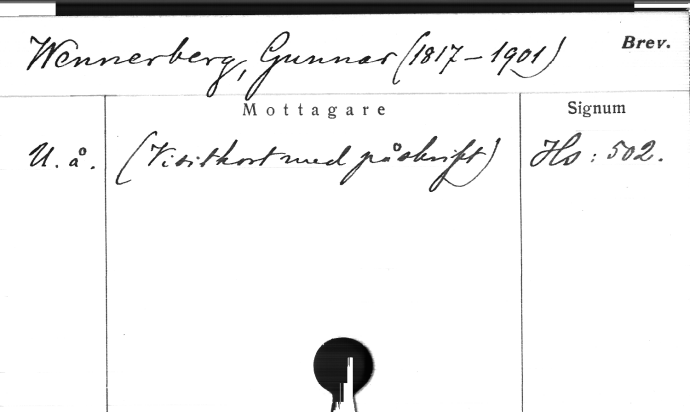 Wennerberg, Gunnar (1817-1901) Brev.
Mottagare Signum
U. å. (Visitkort med påskrift) Hs: 502.